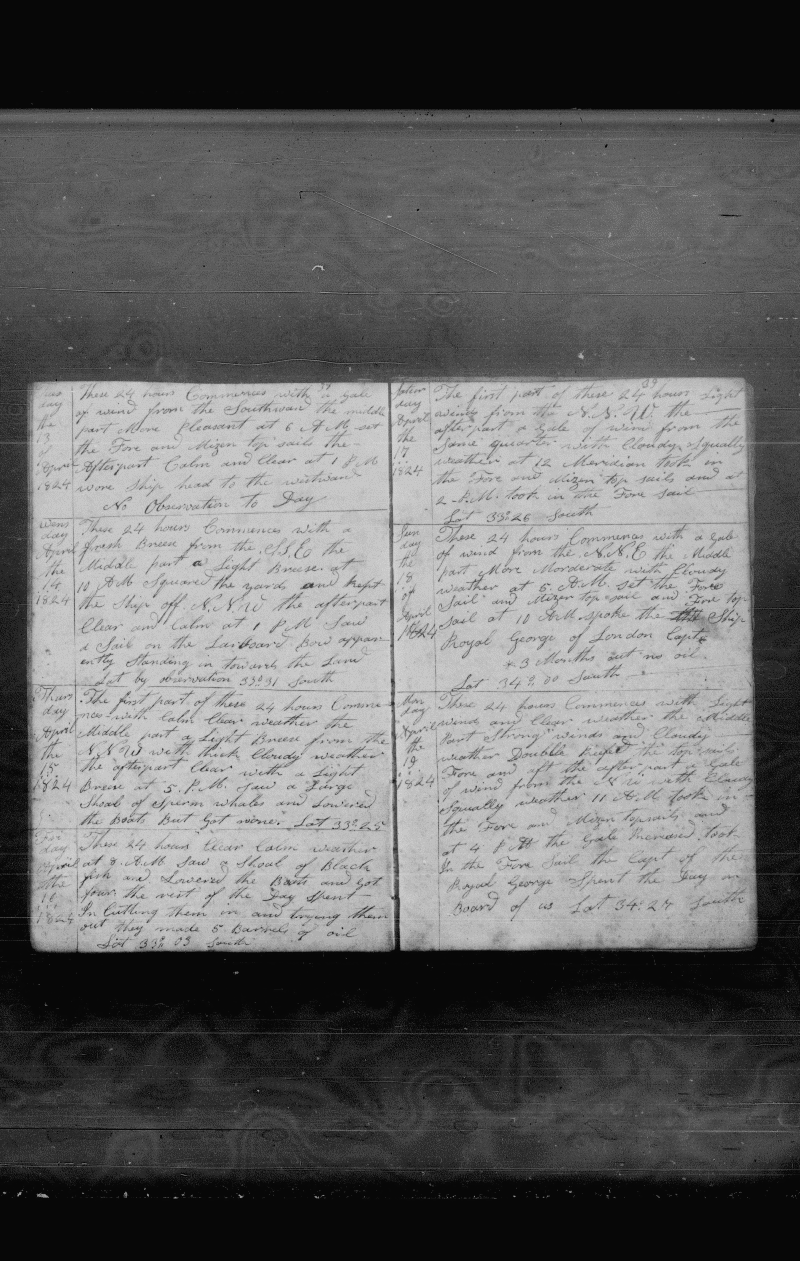 39
Tues
day
the
13
of
April
1824
These 24 hours Commences with a Gale
of wind from the Southward the middle
part More Pleasant at 6 A M set
the Fore and Mizen top sails the
Afterpart Calm and Clear at 1 P M
wore Ship head to the westward
No Observation to Day
Wens
day
April
the
14
1824
These 24 hours Commences with a
fresh Breeze from the E.S.E the
Middle part a Light Breese at
10 A M Squared the yards and kept
the Ship off N.N.W the afterpart
Clear and Calm at 1 P.M. Saw
a Sail on the Larboard Bow appar-
ently Standing in towards the Land
Lat by observation 33°31 South
Thurs
day
April
the
15
1824
The first part of these 24 hours Comme
nces with Calm Clear weather the
Middle part a Light Breese from the
N.N.W with thick Cloudy weather
the afterpart Clear with a Light
Breese at 5. P.M. Saw a Large
Shoal of Sperm whales and Lowered
the Boats But Got none Lat 33°25
Fri
day
April
the
16
1824
These 24 hours Clear Calm weather
at 8 A.M Saw a Shoal of Black
fish and Lowered the Boats and Got
four the rest of the Day Spent
In Cutting them in and trying them
out they made 5 Barrels of oil
Lat 33° 03 South
39
Satur
day
April
the
17
1824
The first part of these 24 hours Light
winds from the N.N.W. the
after part a Gale of wind from the
Same quarter with Cloudy Squally
weather at 12 Meridian took in
the Fore and Mizen top sails and at
2 P.M. took in the Fore sail
Lat 33°26 South
Sun
day
the
18
of
April
1824
These 24 hours Commences with a Gale
of wind from the N.N.E the Middle
part More Morderate with Cloudy
weather at 5 A.M. set the Fore
Sail and Mizen top sail and Fore top-
sail at 10 A.M spoke the Ship
Royal George of London Capt
3 Months out no oil
Lat 34° 00 South
Mon
day
April
the
19
1824
These 24 hours Commences with Light
winds and Clear weather the Middle
Part Strong winds and Cloudy
weather Double Reefd the top sails
Fore and aft the after part a Gale
of wind from the N W with Cloudy
Squally weather 11 A.M. took in
the Fore and Mizen topsails and
at 4 P M the Gale Increased took
In the Fore Sail the Capt of the
Royal George Spent the Day on
Board of us Lat 34:27 South